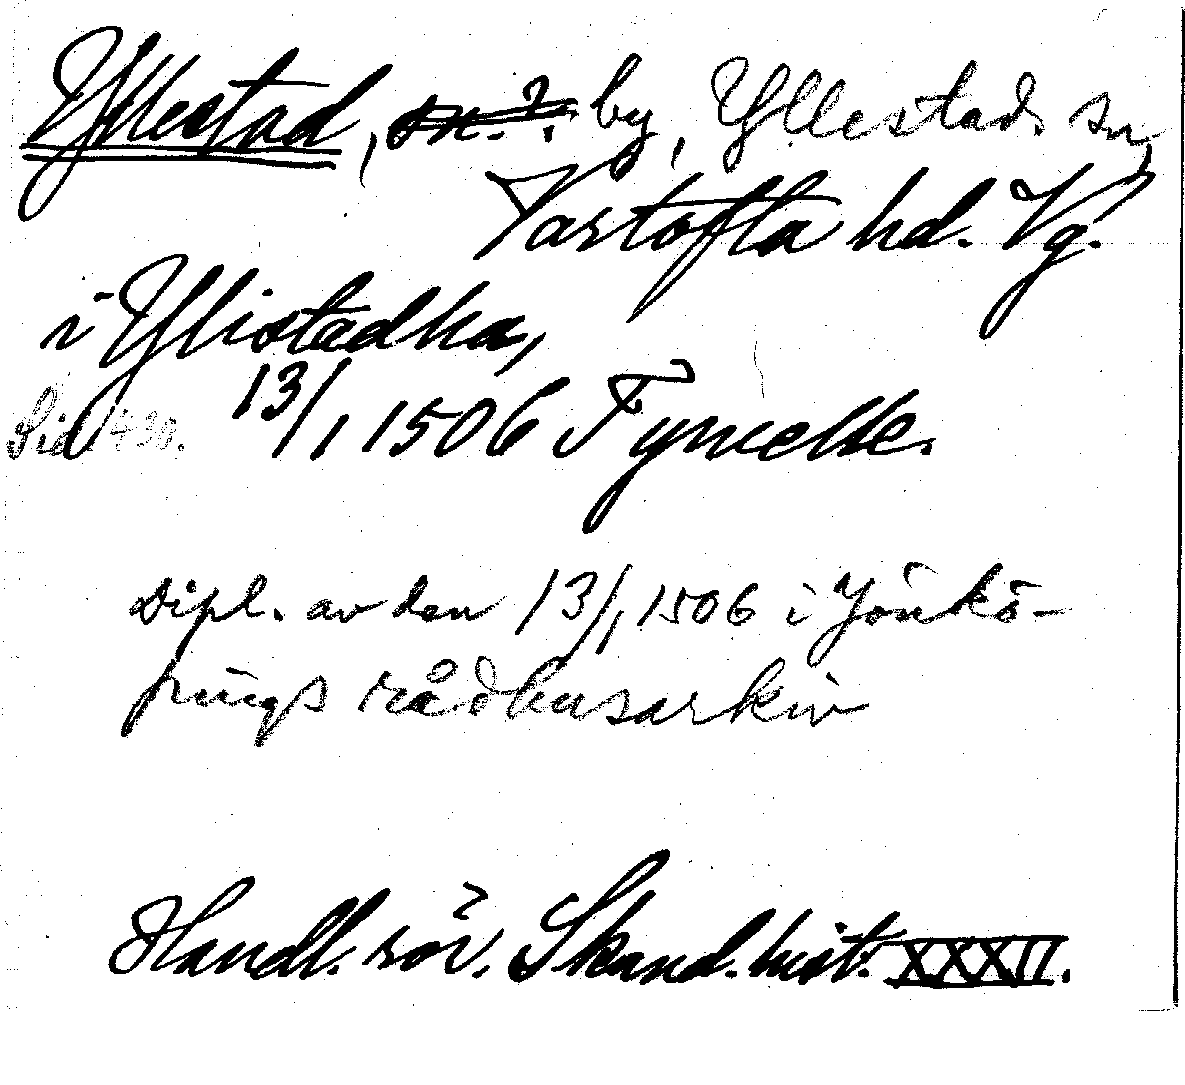 Yllestad, sn.?. by, Yllestads sn,
Vartofta hd. Vg.
i Ylistadha,
Sid 430. 13/1 1506 Tymelle.
Dipl. av den 13/1 1506 i Jönkö-
pings rådhusarkiv
Handl. rör. Skand. hist. XXXII.